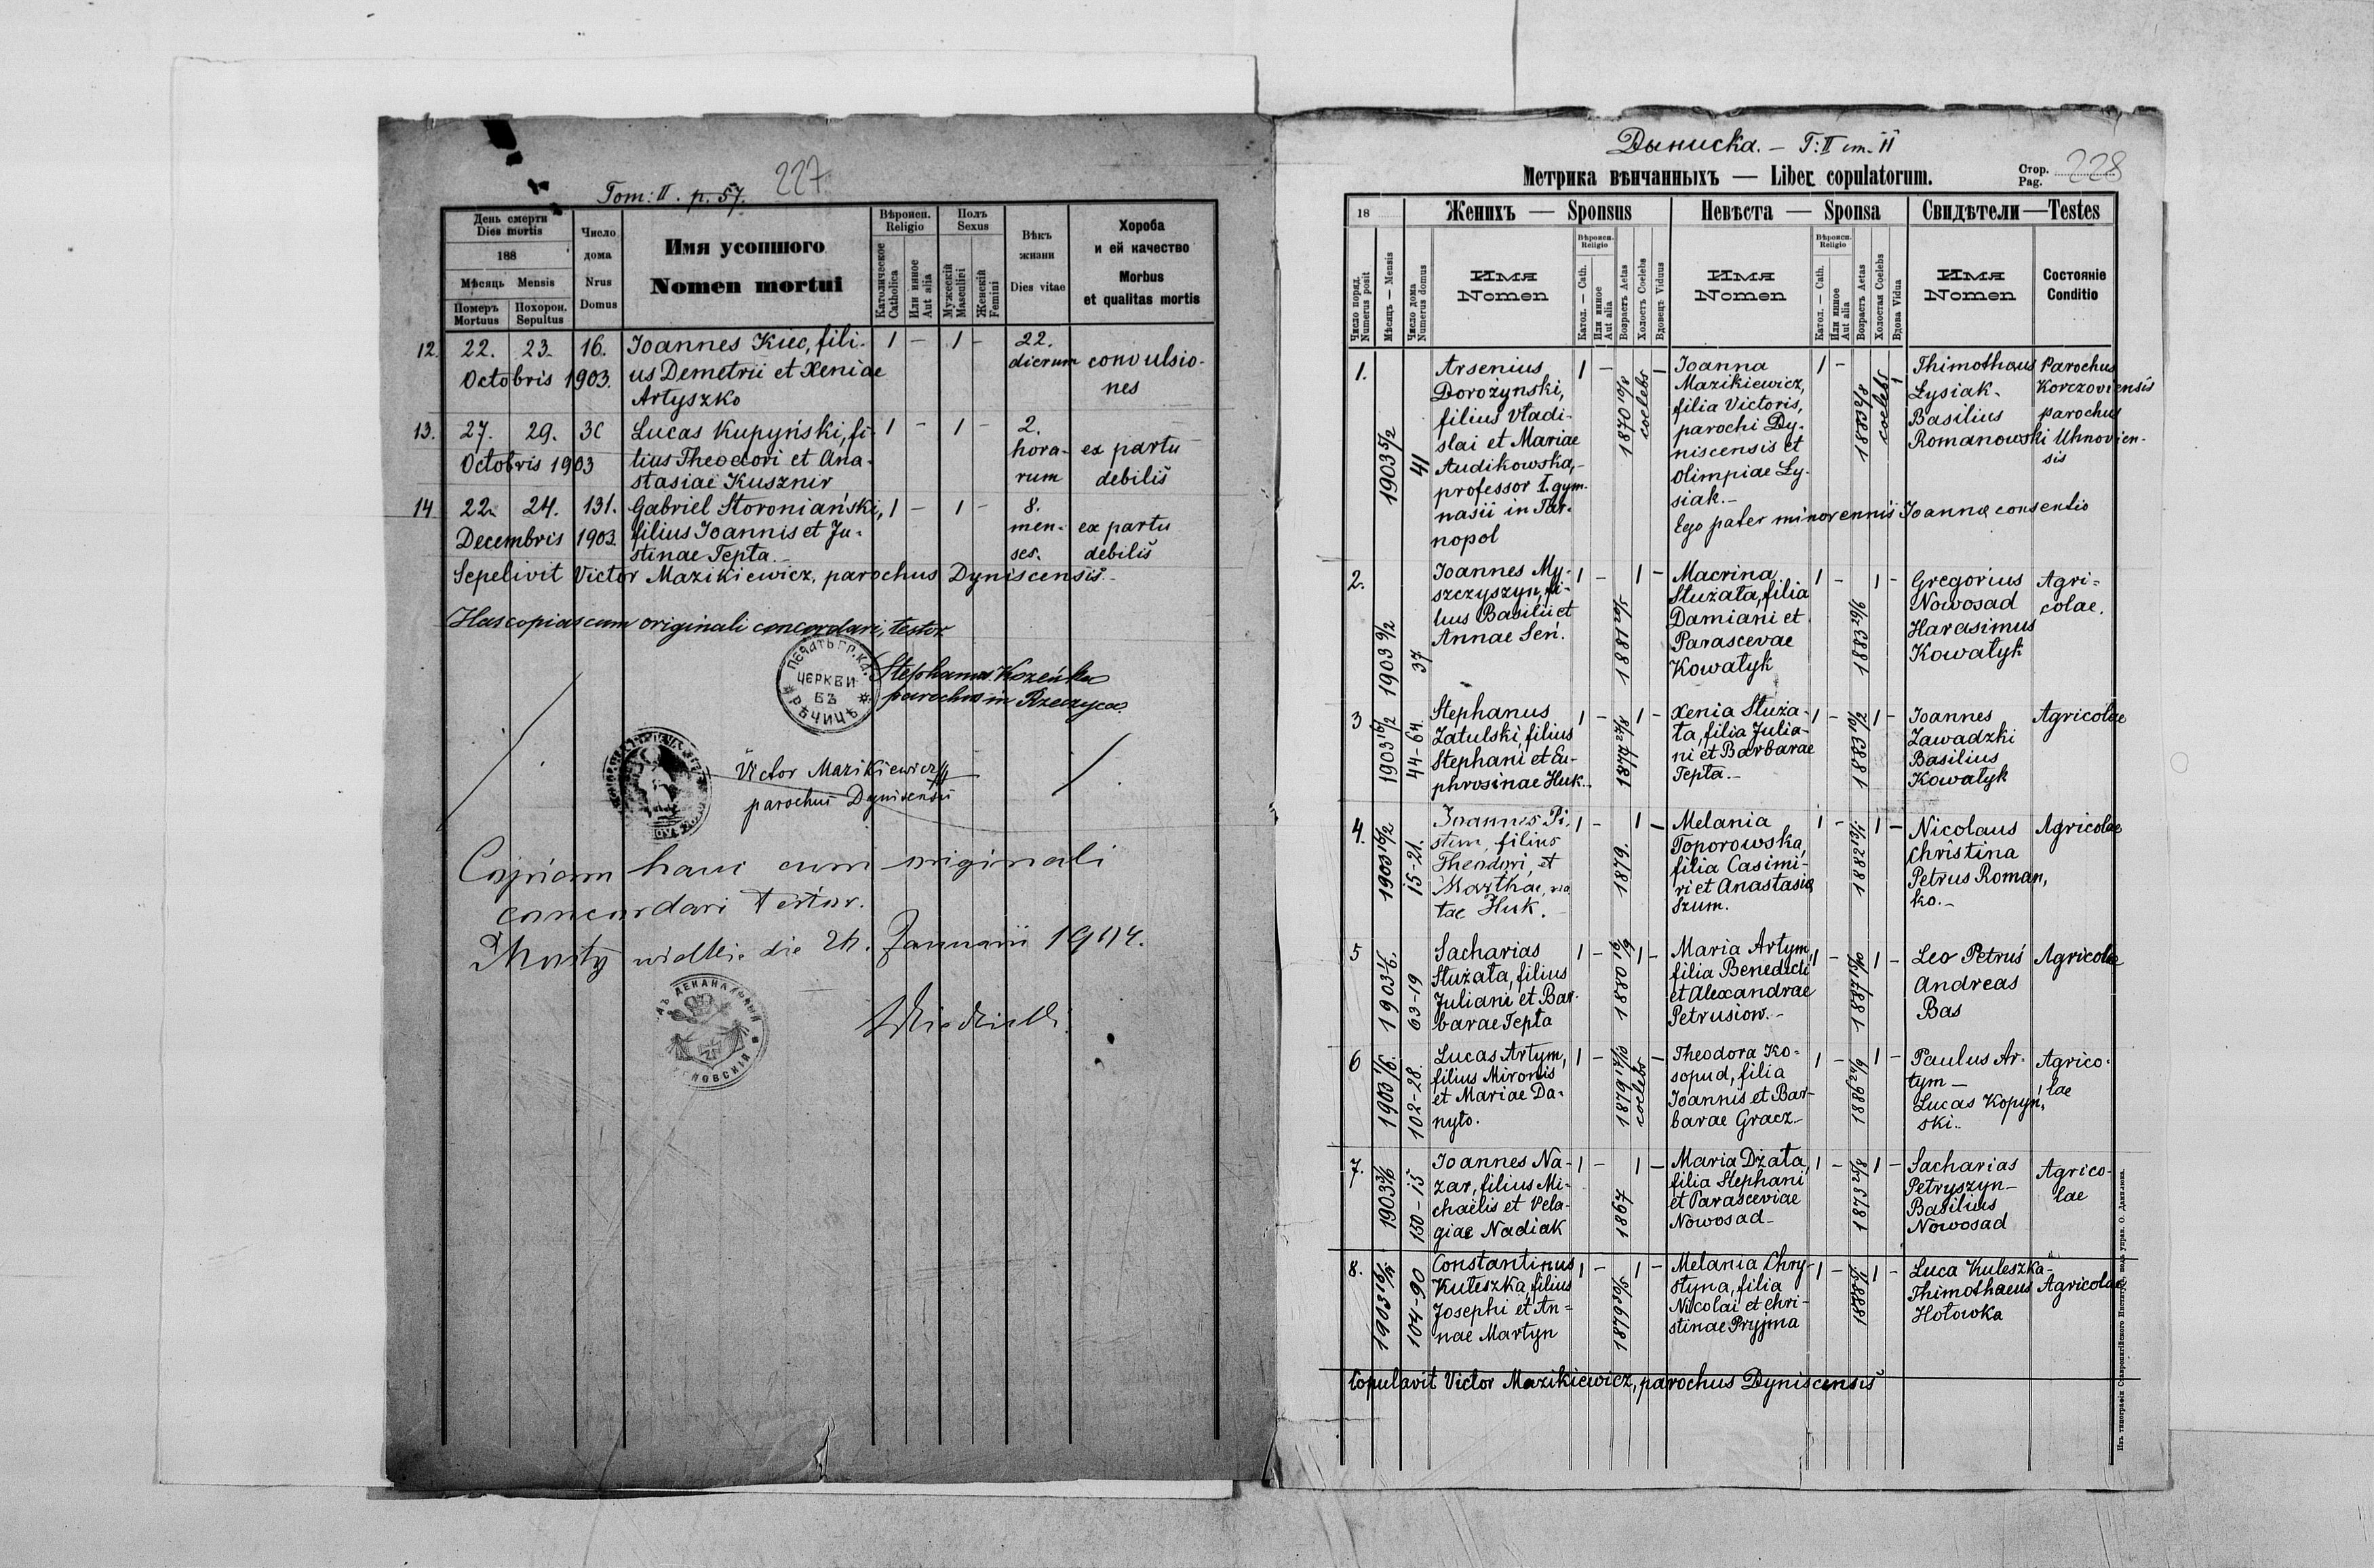 227
Tom: II. p. 57.
День смерти
Dies mortis
188
Мѣсяць Mensis
Померъ
Mortuus
Похорон.
Sepultus
Число
дома
Nrus
Domus
Имя усопшого
Nomen mortui
Вѣроисп.
Religio
Католическое
Catholica
Или инное
Aut alia
Полъ
Sexus
Мужескій
Masculini
Женскій
Femini
Вѣкъ
жизни
Dies vitae
Хороба
и ей качество
Morbus
et qualitas mortis
12. 22. 23. 16. Joannes Kiec, fili- 1 – 1 – 22.
Octobris 1903. us Demetrii et Xeniae dierum convulsio-
Artyszko nes
13. 27. 29. 30 Lucas Kupyński, fi- 1 – 1 – 2.
Octobris 1903 lius Theodori et Ana- hora- ex partu
stasiae Kusznir rum debilis
14 22. 24. 131. Gabriel Storoniański, 1 – 1 – 8.
Decembris 1903. filius Joannis et Ju- men- ex partu
stinae Tepta.- ses. debilis
Sepelivit Victor Mazikiewicz, parochus Dyniscensis.-
Has copias cum originali concordari, testor
ПЕЧАТЬ ГР. КАТ.
ЦЕРКВИ
ВЪ
РѢЧИЦѢ
Stephanus Kozeńko
parochus in Rzeczyca.
Victor Mazikiewicz
parochus Dyniscensis
Copiam hanc cum originali
concordari testor.
Mosty wielkie die 26. Januarii 1904.
ДЕКАНАЛЬНЫЙ
Дыниска. – Т: II ст. 11
Метрика вѣнчанныхъ — Liber copulatorum.
Стор.
Pag. 228
18
Женихъ — Sponsus
Невѣста — Sponsa
Свидѣтели — Testes
Число поряд.
Numerus posit
Мѣсяць — Mensis
Число дома
Numerus domus
Имя
Nomen
Вѣроисп.
Religio
Катол. — Cath.
Или инное
Aut alia
Возрастъ Aetas
Холостъ Coelebs
Вдовецъ Viduus
Имя
Nomen
Вѣроисп.
Religio
Катол. — Cath.
Или инное
Aut alia
Возрастъ Aetas
Холостая Coelebs
Вдова Vidua
Имя
Nomen
Состояніе
Conditio
1. 1903 5/2 41
Arsenius
Dorożynski,
filius Vladi-
slai et Mariae
Audikowska,-
professor I. gym-
nasii in Tar-
nopol
1 – 1870 coelebs –
Joanna
Mazikiewicz,
filia Victoris,
parochi Dy-
niscensis et
Olimpiae Ly-
siak.-
1 – 1883 coelebs 1
Thimotheus
Łysiak-
Basilius
Romanowski
Parochus
Korczoviensis
parochus
Uhnovien-
sis
Ego pater minorennis Joanna consentio
2. 1903 9/2 37
Joannes My-
szczyszyn, fi-
lius Basilii et
Annae Seń.
1 – 1881 1 –
Macrina
Służała, filia
Damiani et
Parascevae
Kowałyk
1 – 1883 1 –
Gregorius
Nowosad
Harasimus
Kowałyk
Agri-
colae.
3 1903 16/2 44-64.
Stephanus
Zatulski, filius
Stephani et Eu-
phrosinae Huk.-
1 – 1877 1 –
Xenia Służa-
ła, filia Julia-
ni et Barbarae
Tepta.-
1 – 1883 1 –
Joannes
Zawadzki
Basilius
Kowałyk
Agricolae
4. 1903 16/2 15-21.
Joannes Pi-
stun, filius
Theodori, et
Marthae, na
tae Huk.
1 – 1879. 1 –
Melania
Toporowska,
filia Casimi-
ri et Anastasia
Szum.
1 – 1882 1 –
Nicolaus
Christina
Petrus Roman,
ko.-
Agricolae
5 1903 63-19
Sacharias
Służała, filius
Juliani et Bar-
barae Tepta
1 – 1880 1 –
Maria Artym,
filia Benedicti
et Alexandrae
Petrusiow.-
1 – 1884 1 –
Leo Petrus
Andreas
Bas
Agricolae
6 1903 102-28.
Lucas Artym,
filius Mironis
et Mariae Da-
nyło.
1 – 1879 coelebs –
Theodora Ko-
sopud, filia
Joannis et Bar-
barae Gracz-
1 – 1886 1 –
Paulus Ar-
tym –
Lucas Kopyń,
ski..
Agrico-
lae
7. 1903 150-15
Joannes Na-
zar, filius Mi-
chaëlis et Pela-
giae Nadiak
1 – 1867 1 –
Maria Dżała,
filia Stephani
et Parasceviae
Nowosad-
1 – 1873 1 –
Sacharias
Petryszyn-
Basilius
Nowosad
Agrico-
lae
8. 1903 104-90
Constantinus
Kuleszka, filius
Josephi et An-
nae Martyn
1 – 1879 1 –
Melania Chry-
styna, filia
Nicolai et Chri-
stinae Pryjma
1 – 1888 1 –
Luca Kuleszka-
Thimothaeus
Hołowka
Agricolae
Copulavit Victor Mazikiewicz, parochus Dyniscensis
Изъ типографіи Ставропигійского Института подъ управ. О. Данилюка.